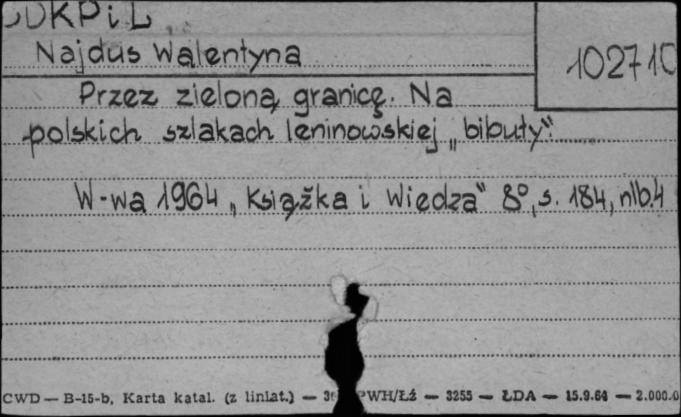 Najdus Walentyna
102710
Przez zieloną granicę. Na
polskich szlakach leninowskiej „bibuły".
W-wa 1964 „Książka i Wiedza" 8°, s. 184, nlb. 4
CWD — B-15-b, Karta katal. (z liniat.) — PWH/Łź — 3255 — ŁDA — 15.9.64 — 2.000.0